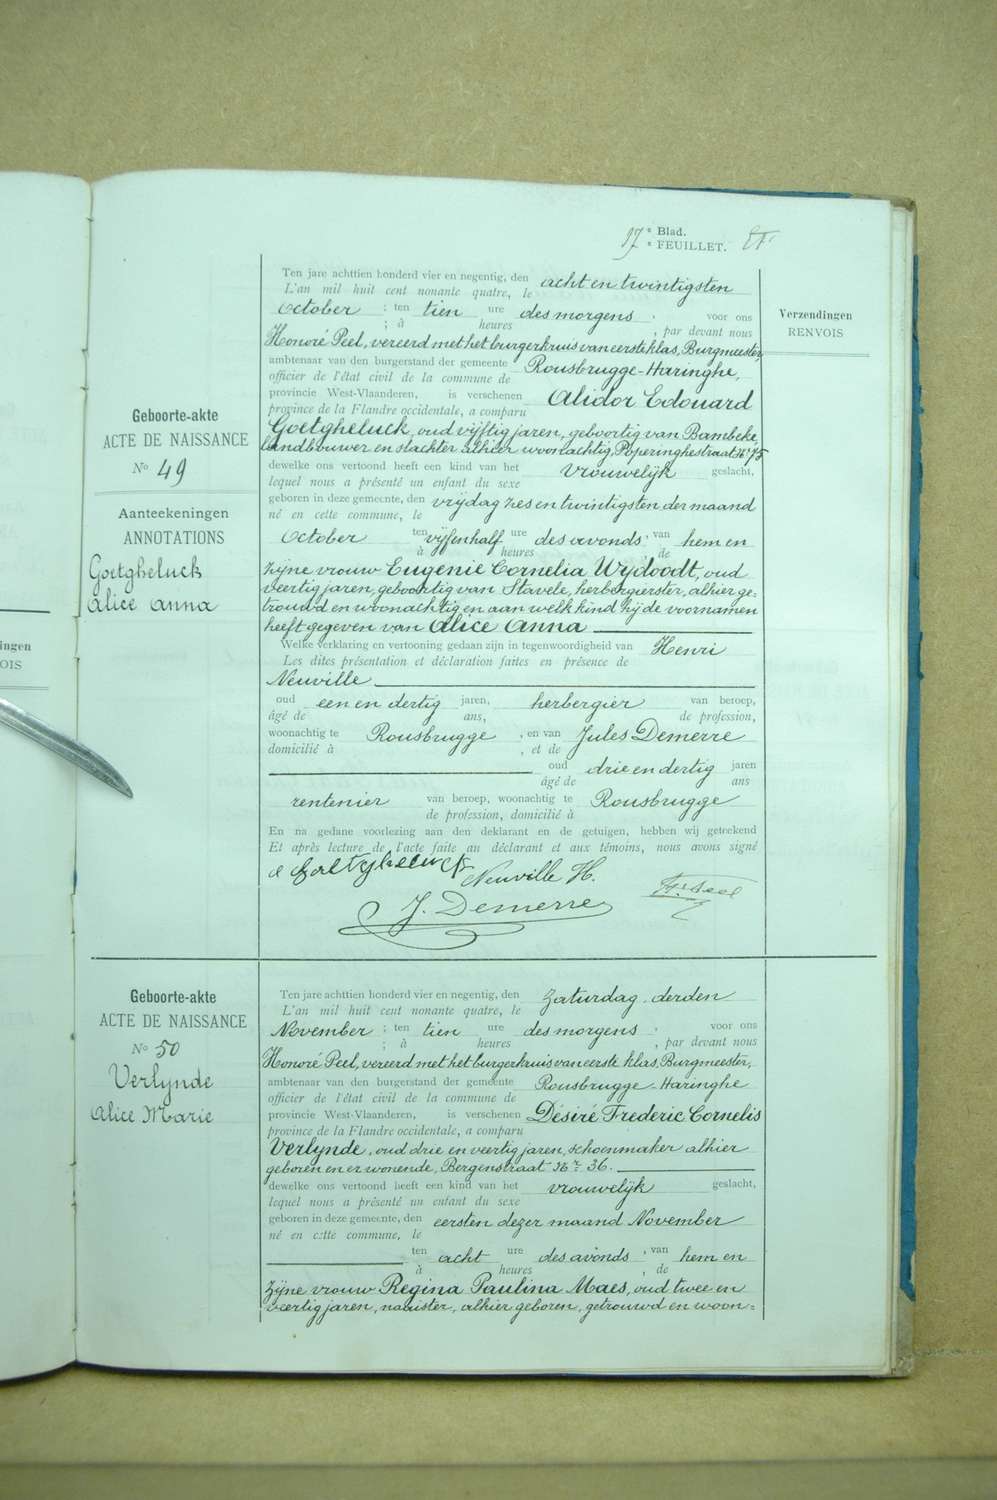 17e Blad.
e FEUILLET.
Ten jare achttien honderd vier en negentig, den acht en twintigsten
L'an mil huit cent nonante quatre, le
October ; ten tien ure des morgens , voor ons
; à heures , par devant nous
Honoré Peel, vereerd met het burgerkruis van eerste klas, Burgmeester,
ambtenaar van den burgerstand der gemeente Rousbrugge-Haringhe,
officier de l'état civil de la commune de
provincie West-Vlaanderen, is verschenen Alidor Edouard
province de la Flandre occidentale, a comparu
Goetgheluck, oud vijftig jaren, geboortig van Bambeke,
landbouwer en slachter alhier woonachtig, Poperinghestraat Nr 75
dewelke ons vertoond heeft een kind van het vrouwelijk geslacht,
lequel nous a présenté un enfant du sexe
geboren in deze gemeente, den vrijdag zes en twintigsten der maand
né en cette commune, le
October ten vijf en half ure des avonds , van hem en
à heures , de
zijne vrouw Eugenie Cornelia Wydoodt, oud
veertig jaren, geboortig van Stavele, herbergierster, alhier ge=
trouwd en woonachtig en aan welk kind hij de voornamen
heeft gegeven van Alice Anna
Welke verklaring en vertooning gedaan zijn in tegenwoordigheid van Henri
Les dites présentation et déclaration faites en présence de
Neuville
oud een en dertig jaren, herbergier van beroep,
âgé de ans, de profession,
woonachtig te Rousbrugge , en van Jules Demerre
domicilié à , et de
oud drie en dertig jaren
âgé de ans
rentenier van beroep, woonachtig te Rousbrugge
de profession, domicilié à
En na gedane voorlezing aan den deklarant en de getuigen, hebben wij geteekend
Et après lecture de l'acte faite au déclarant et aux témoins, nous avons signé
Neuville H.
J. Demerre
Verzendingen
RENVOIS
Geboorte-akte
ACTE DE NAISSANCE
No 49
Aanteekeningen
ANNOTATIONS
Goetgheluck
Alice Anna
Geboorte-akte
ACTE DE NAISSANCE
No 50
Verlynde
Alice Marie
Ten jare achttien honderd vier en negentig, den Zaturdag derden
L'an mil huit cent nonante quatre, le
November ; ten tien ure des morgens , voor ons
; à heures , par devant nous
Honoré Peel, vereerd met het burgerkruis van eerste klas, Burgmeester,
ambtenaar van den burgerstand der gemeente Rousbrugge-Haringhe
officier de l'état civil de la commune de
provincie West-Vlaanderen, is verschenen Désiré Frederic Cornelis
province de la Flandre occidentale, a comparu
Verlynde, oud drie en veertig jaren, schoenmaker alhier
geboren en er wonende, Bergenstraat Nr 36.
dewelke ons vertoond heeft een kind van het vrouwelijk geslacht,
lequel nous a présenté un enfant du sexe
geboren in deze gemeente, den eersten dezer maand November
né en cette commune, le
ten acht ure des avonds , van hem en
à heures , de
zijne vrouw Regina Paulina Maes, oud twee en
veertig jaren, naaister, alhier geboren, getrouwd en woon=